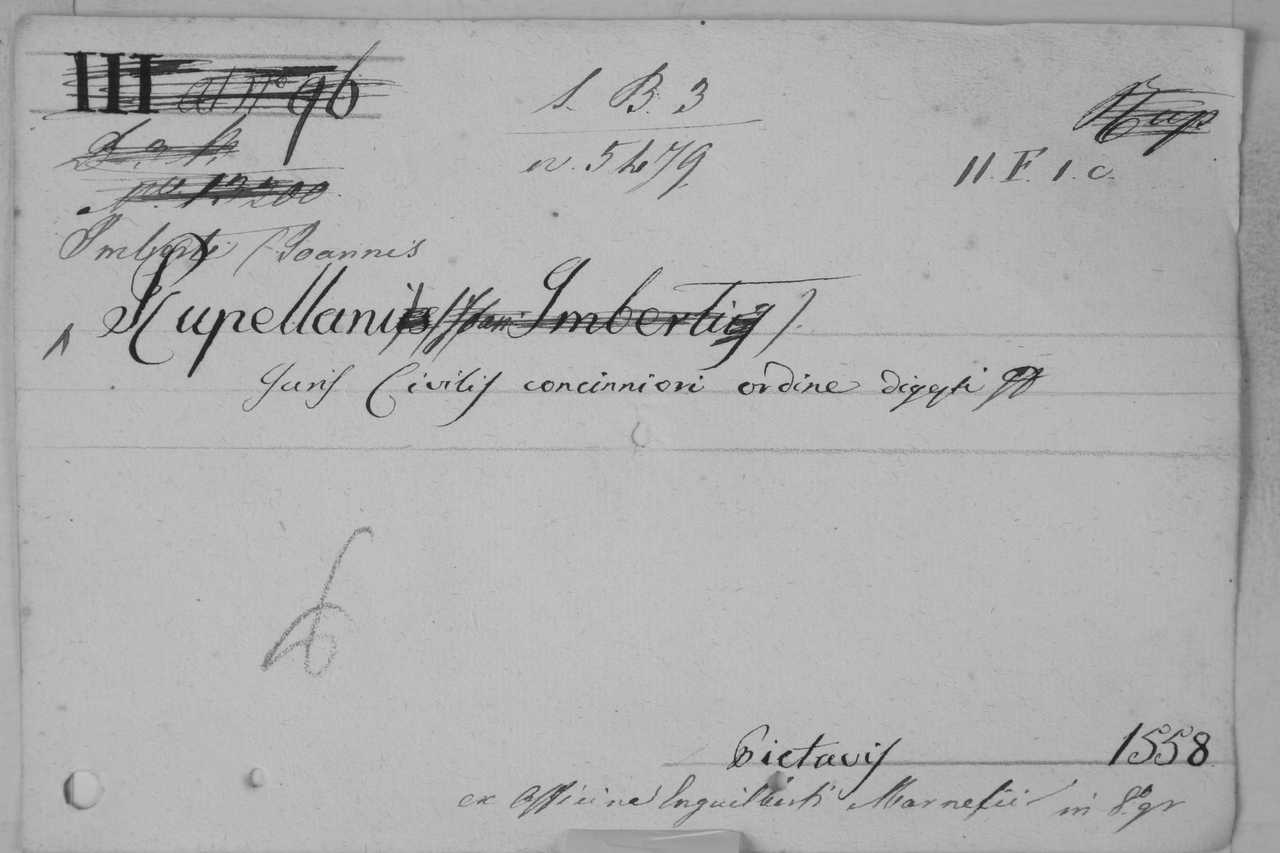 III ad N° 96
S. B. 3
Rup
L. 3. K.
N°. 13200
n. 5479
11. F. 1. c.
Imberti (Joannis
Rupellani (Joan. Imbertig).
Juris Civilis concinniori ordine digesti
Pictavis 1558
ex officina Enguilberti Marnefii in 8° gr